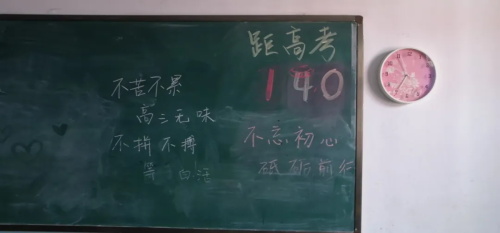 不苦不累
高三无味
不拼不搏
等于白活
距高考
140
不忘初心
砥砺前行